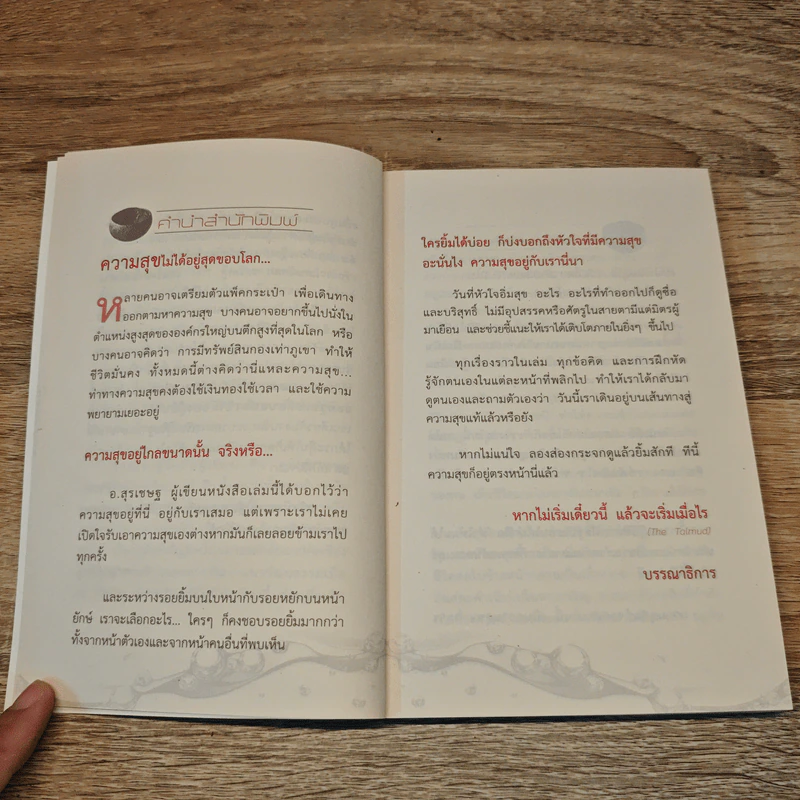 คำนำสำนักพิมพ์
ความสุขไม่ได้อยู่สุดขอบโลก...
หลายคนอาจเตรียมตัวแพ็คกระเป๋า เพื่อเดินทาง
ออกตามหาความสุข บางคนอาจอยากขึ้นไปนั่งใน
ตำแหน่งสูงสุดขององค์กรใหญ่บนตึกสูงที่สุดในโลก หรือ
บางคนอาจคิดว่า การมีทรัพย์สินกองเท่าภูเขา ทำให้
ชีวิตมั่นคง ทั้งหมดนี้ต่างคิดว่านี่แหละความสุข...
ท่าทางความสุขคงต้องใช้เงินทองใช้เวลา และใช้ความ
พยายามเยอะอยู่
ความสุขอยู่ไกลขนาดนั้น จริงหรือ...
อ.สุรเชษฐ ผู้เขียนหนังสือเล่มนี้ได้บอกไว้ว่า
ความสุขอยู่ที่นี่ อยู่กับเราเสมอ แต่เพราะเราไม่เคย
เปิดใจรับเอาความสุขเองต่างหากมันก็เลยลอยข้ามเราไป
ทุกครั้ง
และระหว่างรอยยิ้มบนใบหน้ากับรอยหยักบนหน้า
ยักษ์ เราจะเลือกอะไร... ใครๆ ก็คงชอบรอยยิ้มมากกว่า
ทั้งจากหน้าตัวเองและจากหน้าคนอื่นที่พบเห็น
ใครยิ้มได้บ่อย ก็บ่งบอกถึงหัวใจที่มีความสุข
อะนั่นไง ความสุขอยู่กับเรานี่นา
วันที่หัวใจอิ่มสุข อะไร อะไรที่ทำออกไปก็ดูซื่อ
และบริสุทธิ์ ไม่มีอุปสรรคหรือศัตรูในสายตามีแต่มิตรผู้
มาเยือน และช่วยชี้แนะให้เราได้เติบโตภายในยิ่งๆ ขึ้นไป
ทุกเรื่องราวในเล่ม ทุกข้อคิด และการฝึกหัด
รู้จักตนเองในแต่ละหน้าที่พลิกไป ทำให้เราได้กลับมา
ดูตนเองและถามตัวเองว่า วันนี้เราเดินอยู่บนเส้นทางสู่
ความสุขแท้แล้วหรือยัง
หากไม่แน่ใจ ลองส่องกระจกดูแล้วยิ้มสักที ทีนี้
ความสุขก็อยู่ตรงหน้านี่แล้ว
หากไม่เริ่มเดี๋ยวนี้ แล้วจะเริ่มเมื่อไร
(The Talmud)
บรรณาธิการ